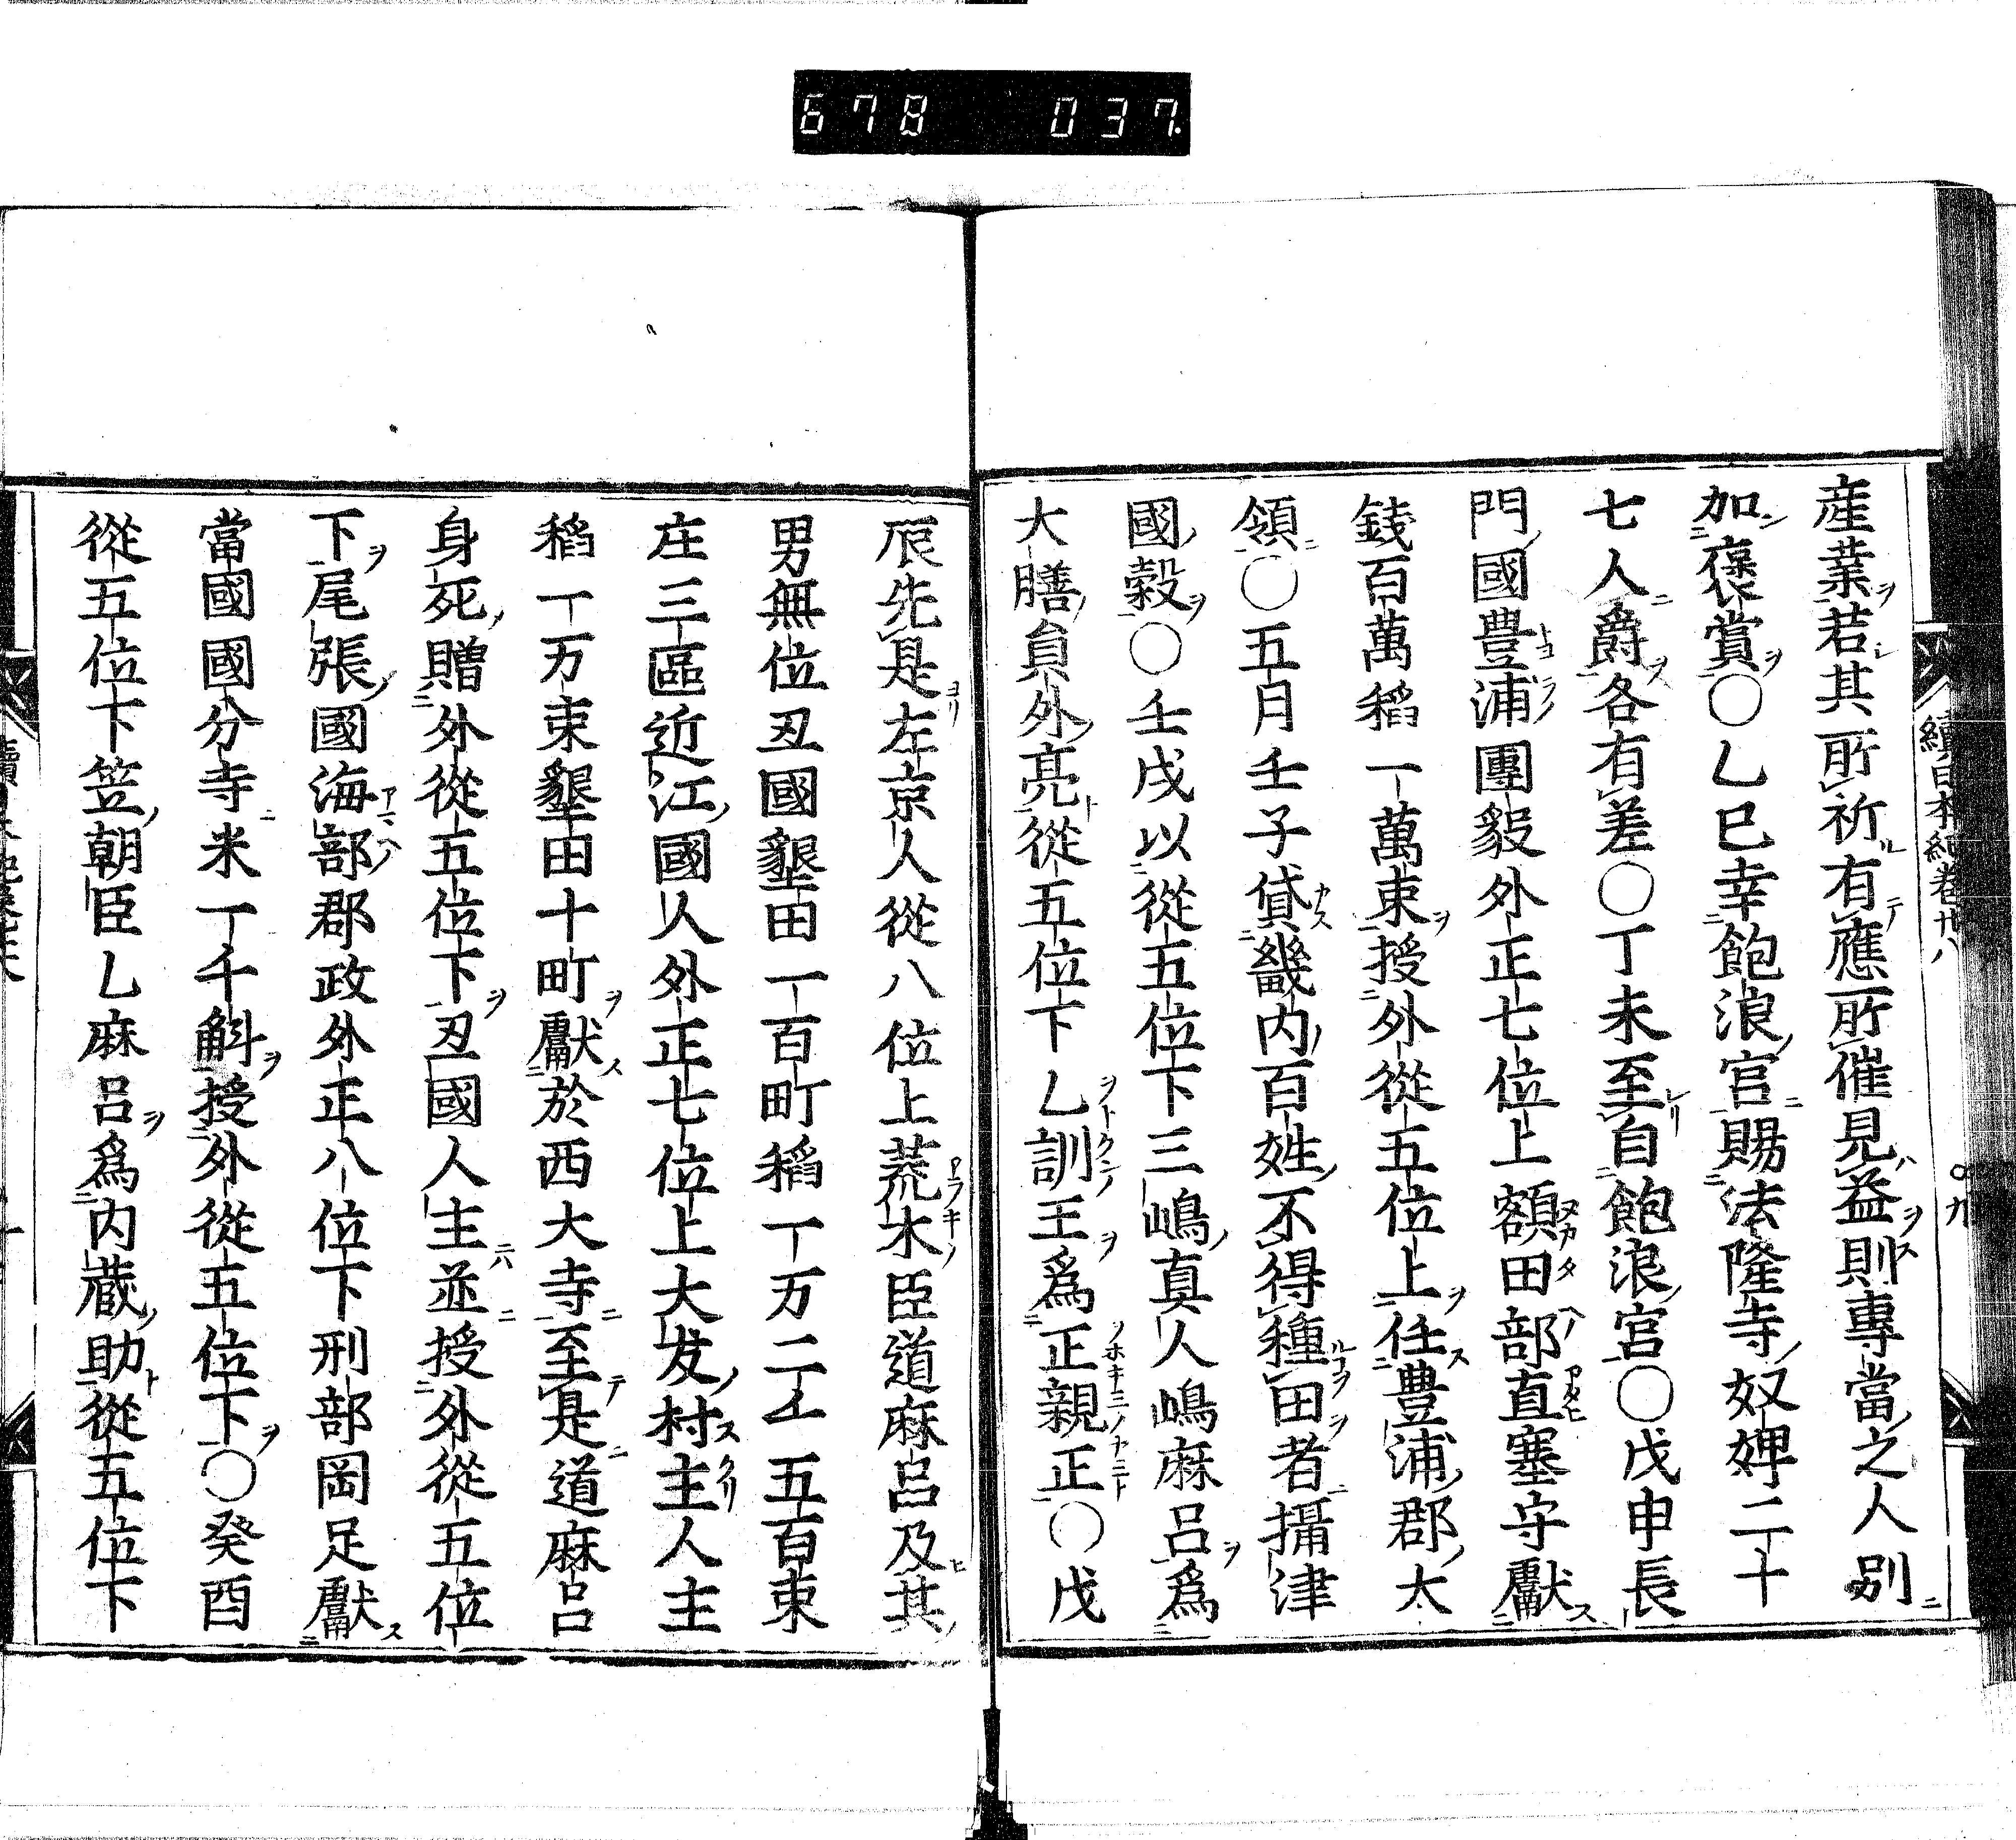 678 037.
續日本紀卷廿八 ○九
産業若其所祈有應所催見益則專當之人別
加襃賞○乙巳幸飽浪宮賜法隆寺奴婢二十
七人爵各有差○丁未至自飽浪宮○戊申長
門國豊浦團毅外正七位上額田部直塞守獻
錢百萬稻一萬束授外從五位上任豊浦郡大
領○五月壬子貸畿内百姓不得種田者攝津
國穀○壬戌以從五位下三嶋真人嶋麻呂爲
大膳員外亮從五位下乙訓王爲正親正○戊
辰先是左京人從八位上荒木臣道麻呂及其
男無位忍國墾田一百町稻一万二千五百束
庄三區近江國人外正七位上大友村主人主
稻一万束墾田十町獻於西大寺至是道麻呂
身死贈外從五位下忍國人主並授外從五位
下尾張國海部郡政外正八位下刑部岡足獻
當國國分寺米一千斛授外從五位下○癸酉
從五位下笠朝臣乙麻呂爲内蔵助從五位下